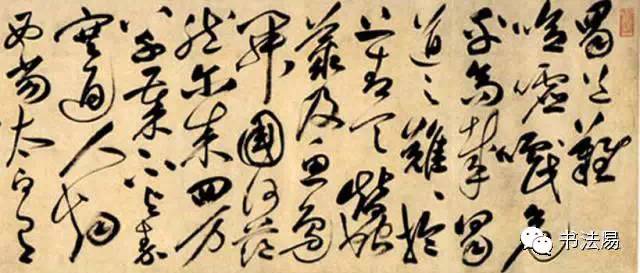 蜀道難
噫嘘嚱危
乎高哉蜀
道之難難於
上青天蠶
叢及魚鳧
開國何茫
然尔来四万
八千歲不与秦
塞通人烟
西當太白有
书法易